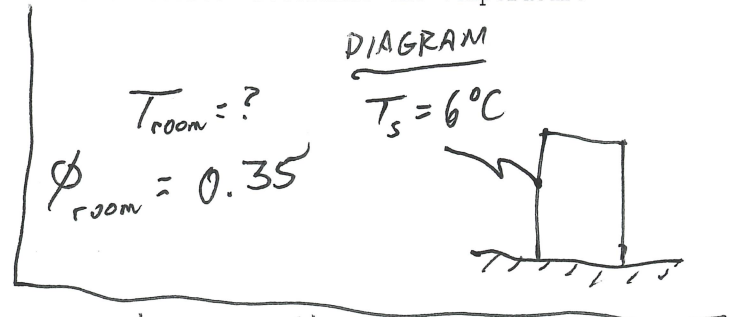 DIAGRAM
T_room = ?
T_s = 6°C
φ_room = 0.35